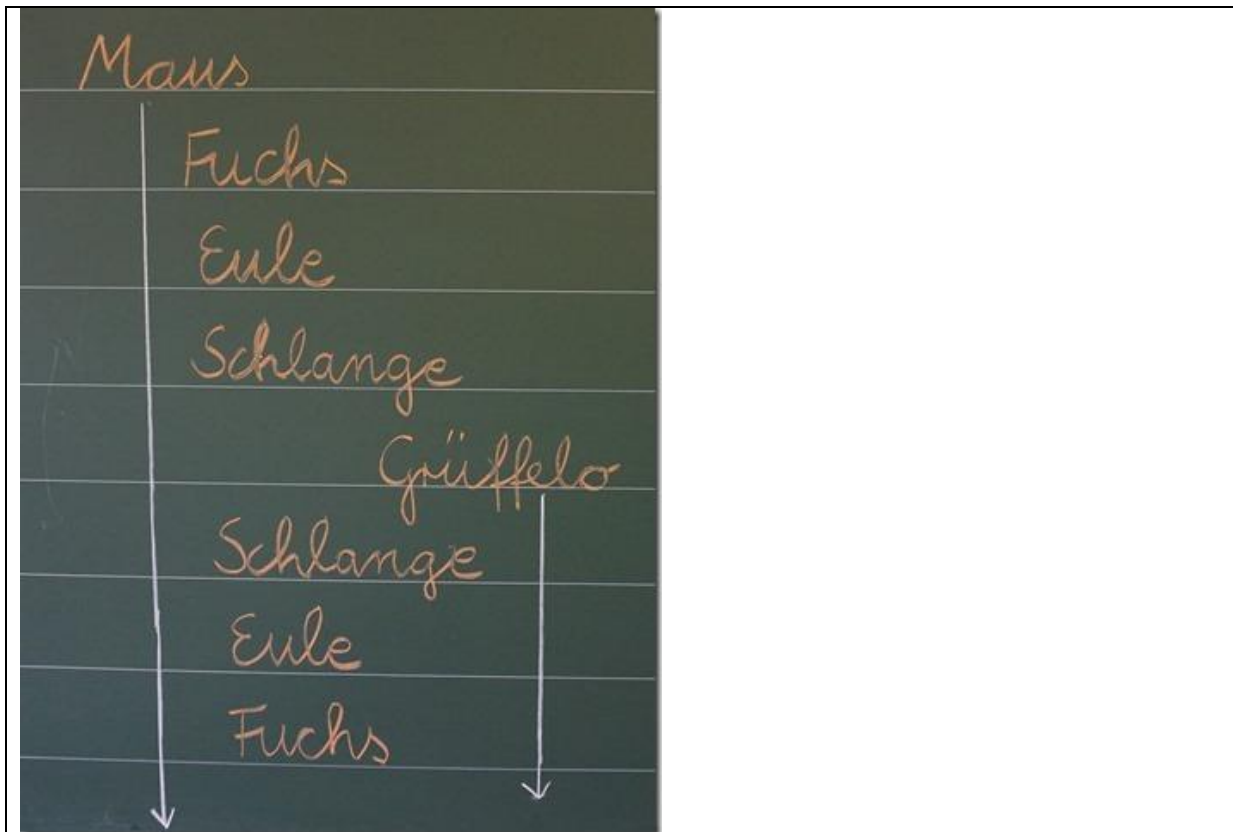 Maus
Fuchs
Eule
Schlange
Grüffelo
Schlange
Eule
Fuchs